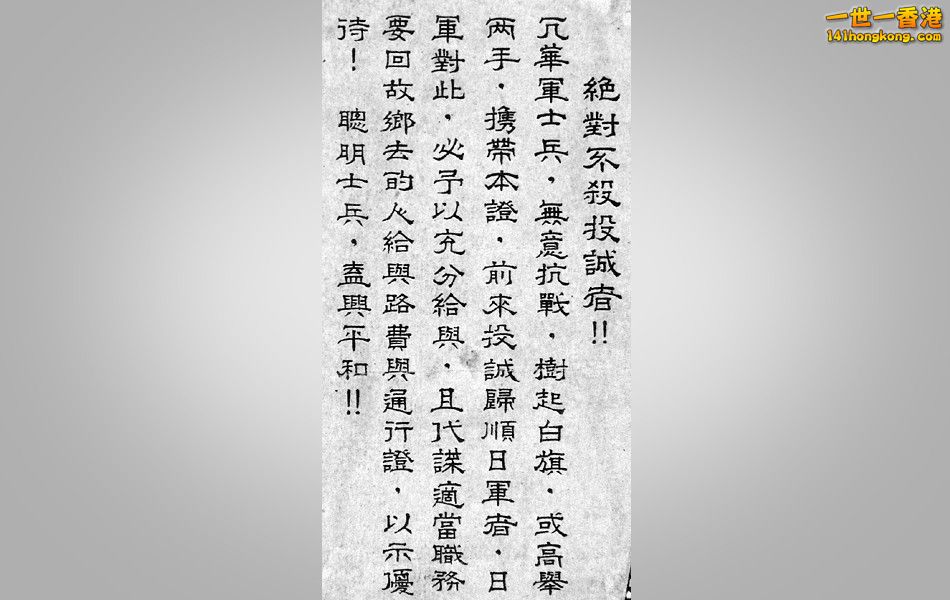 絶對不殺投誠者!!
凡華軍士兵,無意抗戰,樹起白旗,或高舉
兩手,携帶本證,前來投誠歸順日軍者,日
軍對此,必予以充分給與,且代謀適當職務
要回故鄉去的人給與路費與通行證,以示優
待! 聰明士兵,盍興平和!!
一世一香港
141hongkong.com